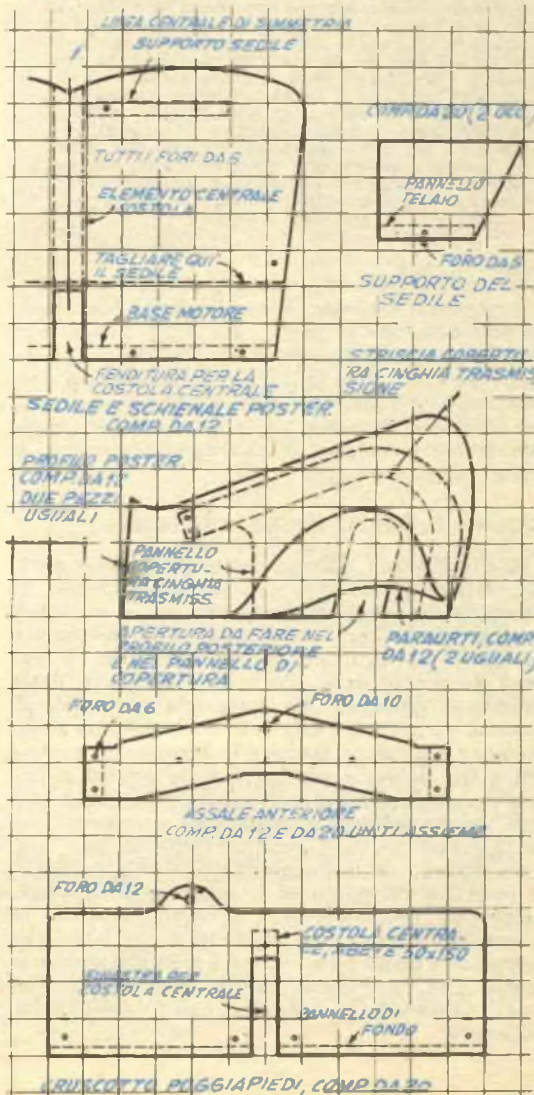 LINEA CENTRALE DI SIMMETRIA
SUPPORTO SEDILE
TUTTI I FORI DA 6
ELEMENTO CENTRALE
COSTOLA
TAGLIARE QUI
IL SEDILE
BASE MOTORE
FENDITURA PER LA
COSTOLA CENTRALE
SEDILE E SCHIENALE POSTER.
COMP. DA 12
COMP. DA 20 (2 OCC.)
PANNELLO
TELAIO
FORO DA 5
SUPPORTO DEL
SEDILE
STRISCIA COPERTU-
RA CINGHIA TRASMIS-
SIONE
PROFILO POSTER.
COMP. DA 12
DUE PEZZI
UGUALI
PANNELLO
COPERTU-
RA CINGHIA
TRASMISS.
APERTURA DA FARE NEL
PROFILO POSTERIORE
E NEL PANNELLO DI
COPERTURA
PARAURTI, COMP.
DA 12 (2 UGUALI)
FORO DA 6
FORO DA 10
ASSALE ANTERIORE
COMP. DA 12 E DA 20 UNITI ASSIEME
FORO DA 12
COSTOLA CENTRA-
LE, ABETE 50x150
FINESTRA PER
COSTOLA CENTRALE
PANNELLO DI
FONDO
CRUSCOTTO POGGIAPIEDI, COMP. DA 20